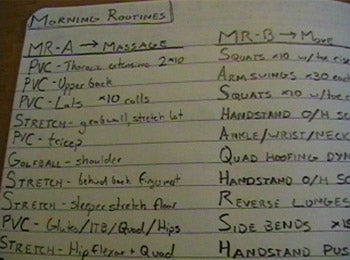 MORNING ROUTINES
MR-A → MASSAGE
PVC - Thoracic extensions 2x10
PVC - Upper back
PVC - Lats x10 rolls
STRETCH - grab wall, stretch lat
PVC - tricep
GOLFBALL - shoulder
STRETCH - behind back
STRETCH - sleeper stretch floor
PVC - Glutes/ITB/Quad/Hips
STRETCH - Hip flexor + Quad
MR-B → MOVE
SQUATS x10 w/toe rise
ARM SWINGS x30 each
SQUATS x10 w/toe
HANDSTAND O/H SC
ANKLE/WRIST/NECK
QUAD HOOFING DYN
HANDSTAND O/H SC
REVERSE LUNGES
SIDE BENDS x15
HANDSTAND PUS